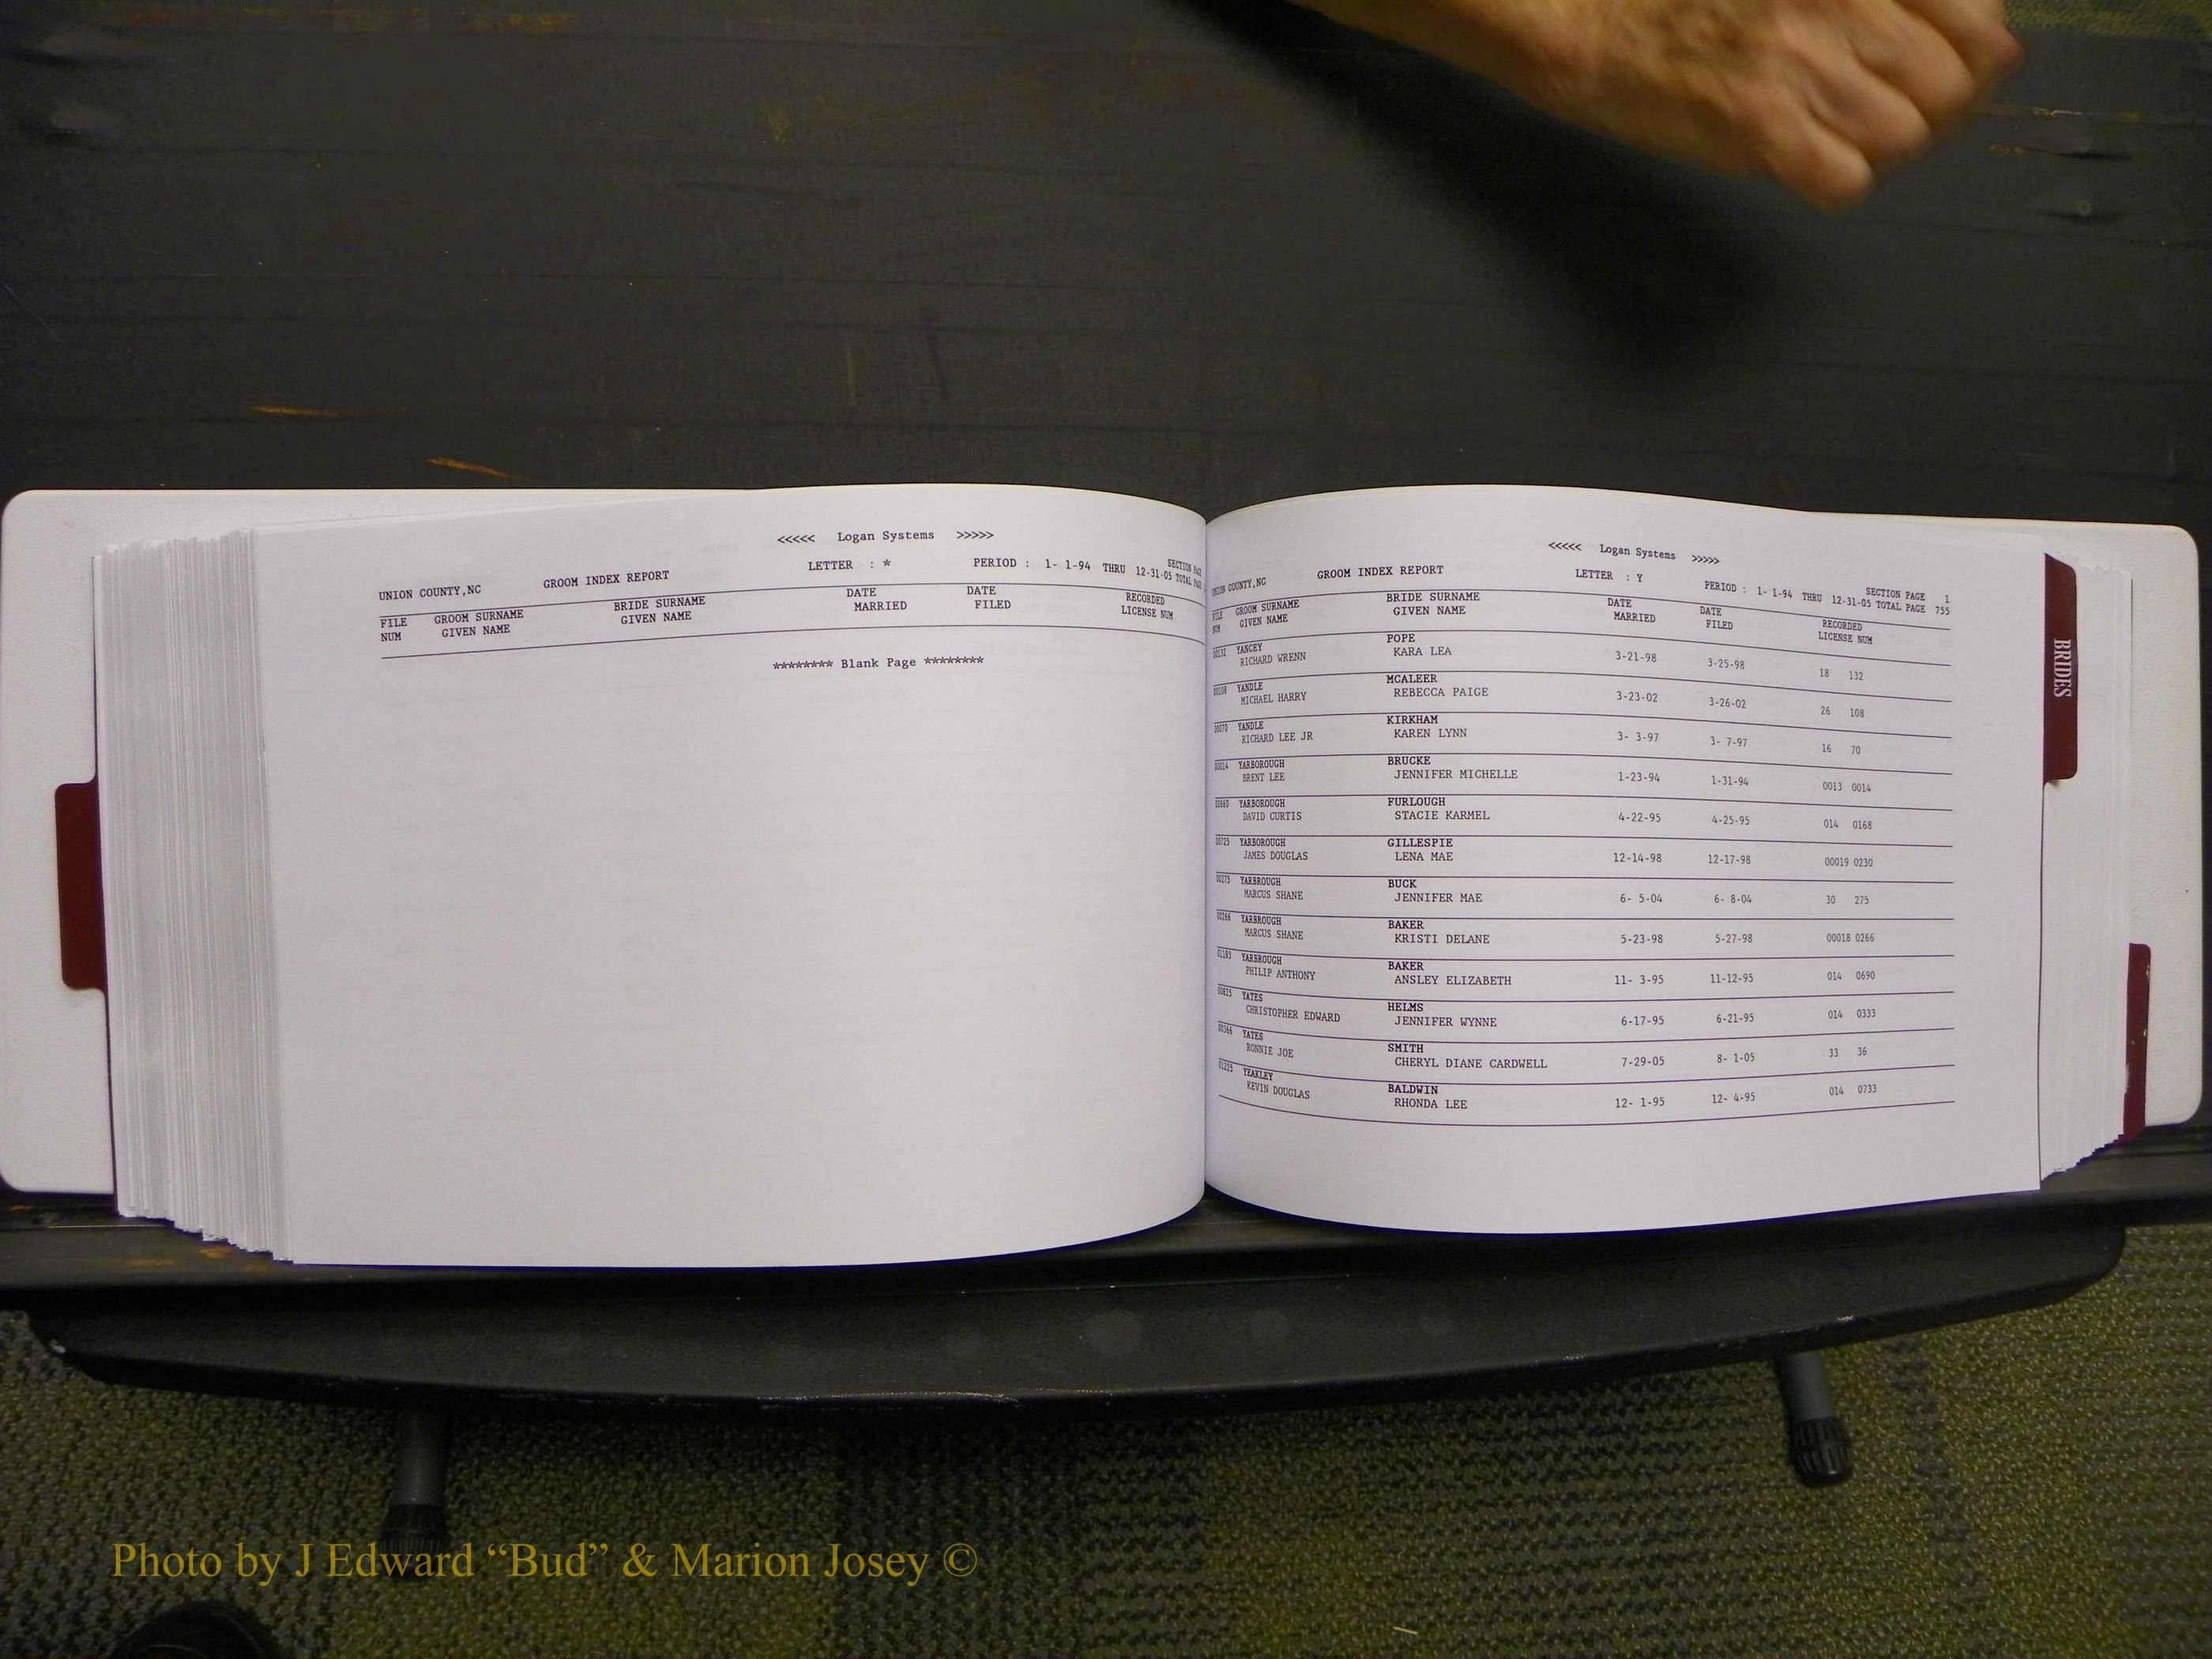 <<<<< Logan Systems >>>>>
UNION COUNTY,NC GROOM INDEX REPORT LETTER : * PERIOD : 1- 1-94 THRU 12-31-05 SECTION PAGE
TOTAL
FILE GROOM SURNAME BRIDE SURNAME DATE DATE RECORDED
NUM GIVEN NAME GIVEN NAME MARRIED FILED LICENSE NUM
******** Blank Page ********
<<<<< Logan Systems >>>>>
UNION COUNTY,NC GROOM INDEX REPORT LETTER : Y PERIOD : 1- 1-94 THRU 12-31-05 SECTION PAGE 1
TOTAL PAGE 755
FILE GROOM SURNAME BRIDE SURNAME DATE DATE RECORDED
NUM GIVEN NAME GIVEN NAME MARRIED FILED LICENSE NUM
00132 YANCEY POPE
RICHARD WRENN KARA LEA 3-21-98 3-25-98 18 132
00108 YANDLE MCALEER
MICHAEL HARRY REBECCA PAIGE 3-23-02 3-26-02 26 108
00070 YANDLE KIRKHAM
RICHARD LEE JR KAREN LYNN 3- 3-97 3- 7-97 16 70
00014 YARBOROUGH BRUCKE
BRENT LEE JENNIFER MICHELLE 1-23-94 1-31-94 0013 0014
00660 YARBOROUGH FURLOUGH
DAVID CURTIS STACIE KARMEL 4-22-95 4-25-95 014 0168
00725 YARBOROUGH GILLESPIE
JAMES DOUGLAS LENA MAE 12-14-98 12-17-98 00019 0230
00275 YARBROUGH BUCK
MARCUS SHANE JENNIFER MAE 6- 5-04 6- 8-04 30 275
00266 YARBROUGH BAKER
MARCUS SHANE KRISTI DELANE 5-23-98 5-27-98 00018 0266
01183 YARBROUGH BAKER
PHILIP ANTHONY ANSLEY ELIZABETH 11- 3-95 11-12-95 014 0690
00825 YATES HELMS
CHRISTOPHER EDWARD JENNIFER WYNNE 6-17-95 6-21-95 014 0333
00366 YATES SMITH
RONNIE JOE CHERYL DIANE CARDWELL 7-29-05 8- 1-05 33 36
01225 YEAKLEY BALDWIN
KEVIN DOUGLAS RHONDA LEE 12- 1-95 12- 4-95 014 0733
BRIDES
Photo by J Edward “Bud” & Marion Josey ©